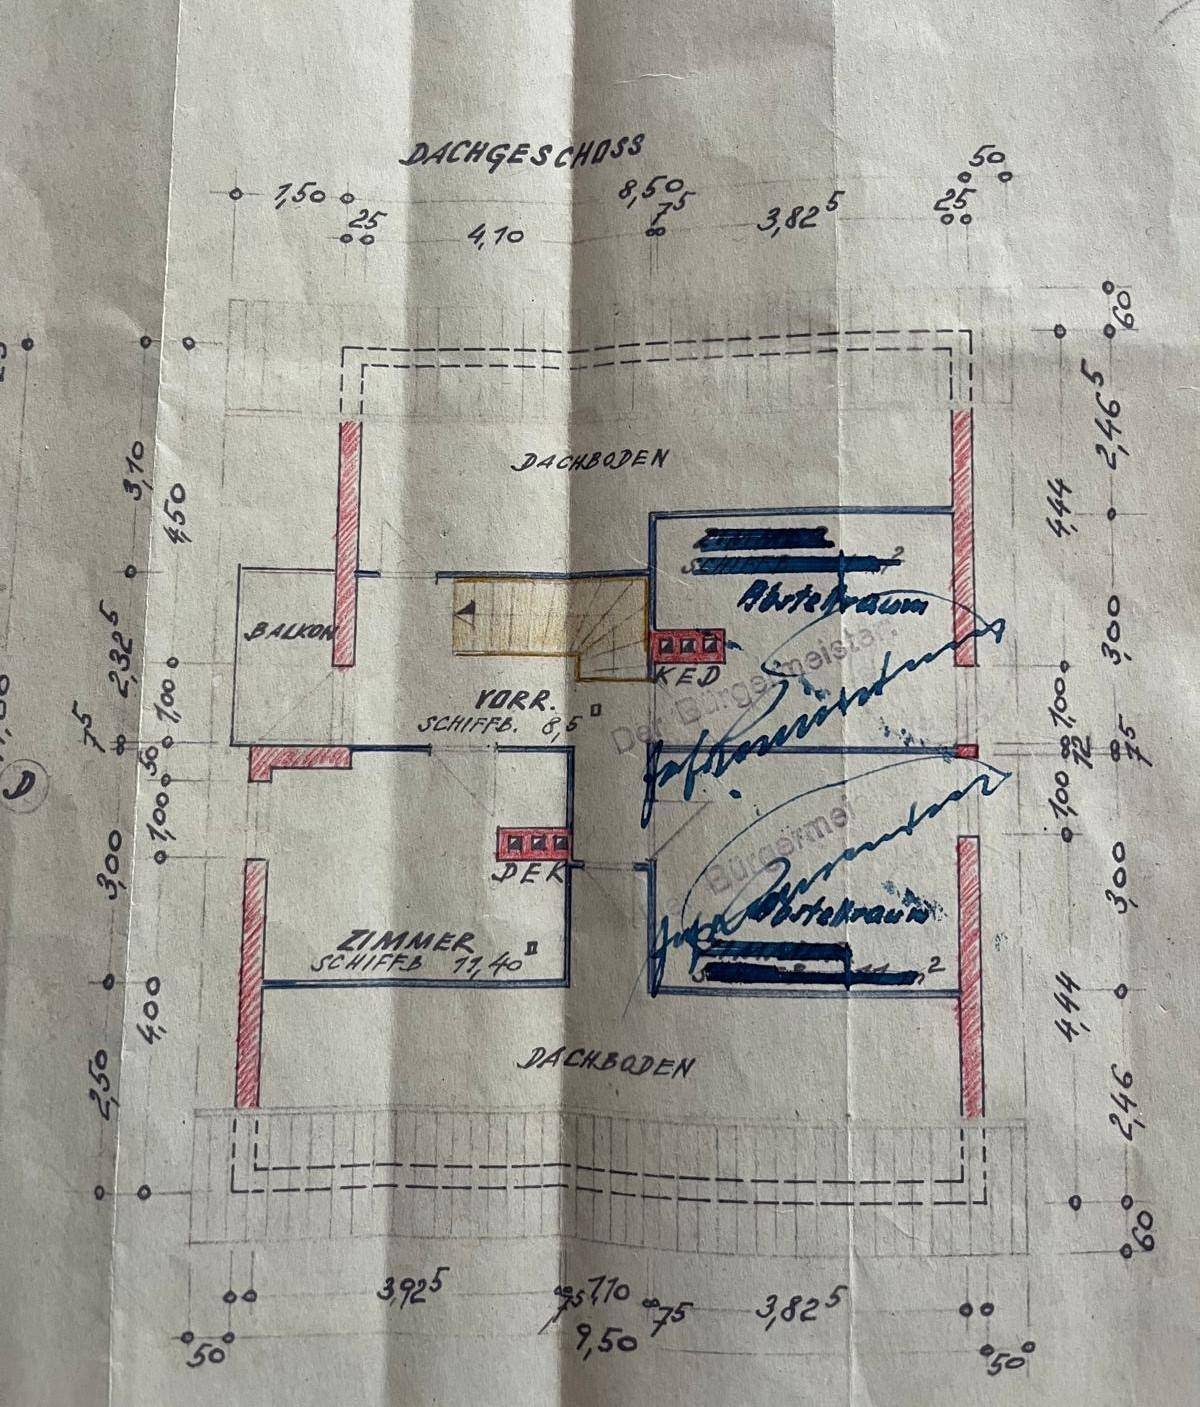 DACHGESCHOSS
50
1,50
8,50
25
7⁵
25
4,10
3,82⁵
60
2,46⁵
3,10
DACHBODEN
4,50
4,44
Abstellraum
3,00
BALKON
2,32⁵
KED
Der Bürgermeister:
VORR.
SCHIFFB. 8,5
1,00
1,00
7⁵
50
12
75
1,00
1,00
D
3,00
DEK
3,00
Abstellraum
ZIMMER
SCHIFFB 11,40
2
4,00
4,44
DACHBODEN
2,50
2,46
60
3,92⁵
7⁵
1,10
7⁵
3,82⁵
9,50
50
50